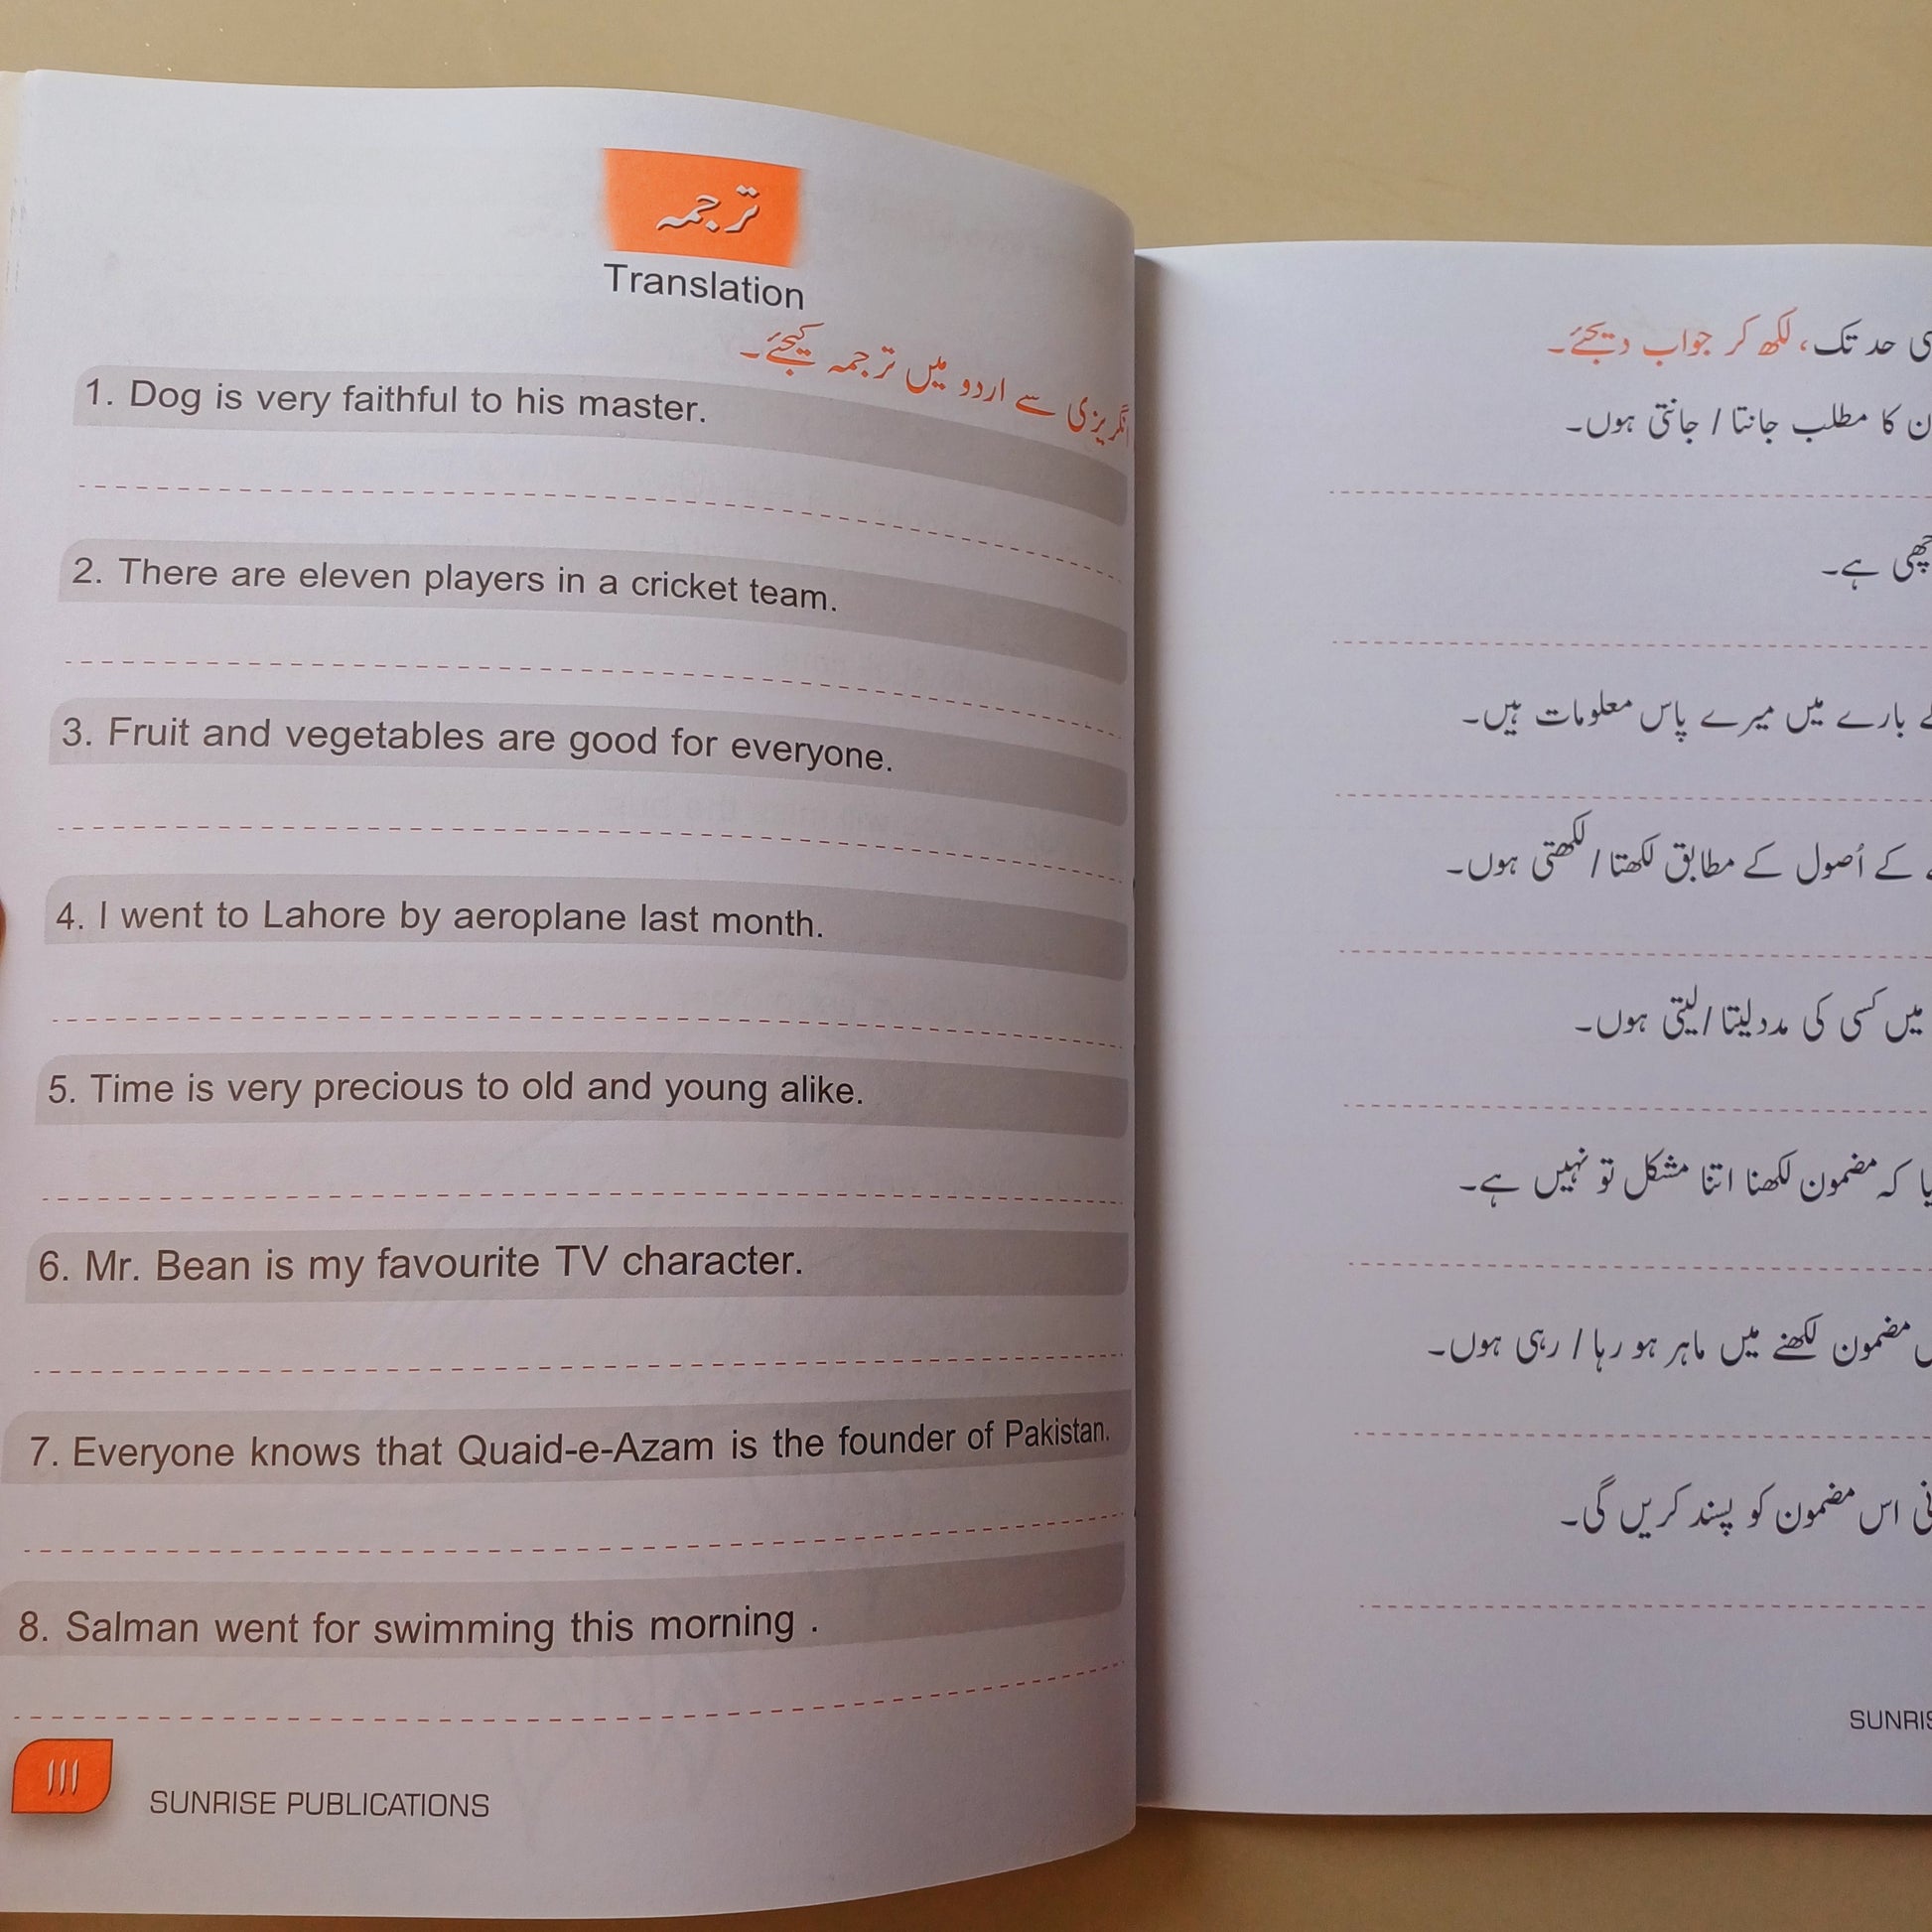 ترجمہ
Translation
انگریزی سے اردو میں ترجمہ کیجئے۔
1. Dog is very faithful to his master.
2. There are eleven players in a cricket team.
3. Fruit and vegetables are good for everyone.
4. I went to Lahore by aeroplane last month.
5. Time is very precious to old and young alike.
6. Mr. Bean is my favourite TV character.
7. Everyone knows that Quaid-e-Azam is the founder of Pakistan.
8. Salman went for swimming this morning .
۱۱۱
SUNRISE PUBLICATIONS
حد تک، لکھ کر جواب دیجئے۔
کا مطلب جانتا / جانتی ہوں۔
ہے۔
بارے میں میرے پاس معلومات ہیں۔
کے اُصول کے مطابق لکھتا / لکھتی ہوں۔
میں کسی کی مدد لیتا / لیتی ہوں۔
کہ مضمون لکھنا اتنا مشکل تو نہیں ہے۔
مضمون لکھنے میں ماہر ہو رہا / رہی ہوں۔
اس مضمون کو پسند کریں گی۔